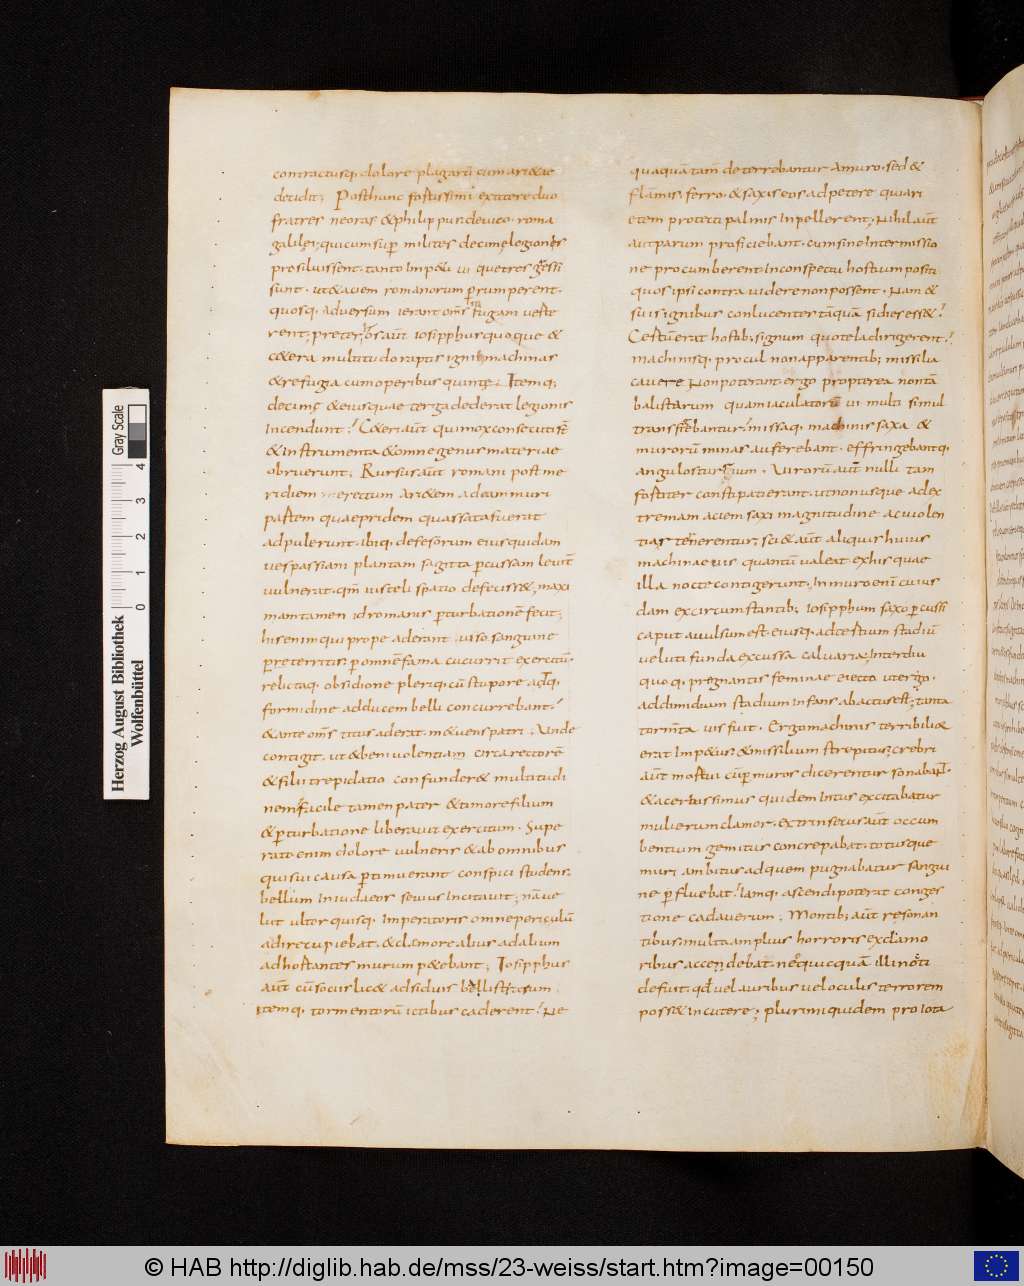 contractusq; dolore plagarũ cum ari&te
decidit; Post hunc fortissimi extitere duo
fratres neoras & philippus de uico roma
galilei; quicum sup milites decimę legionis
prosiluissent; tanto imp&u ui quetres gressi
sunt. ut & aciem romanorum prumperent.
quosq; aduersum ierant oms in fugam uerte
rent; preter hos aut iosipphus quoque &
c&era multitudo raptis igni machinas
& refugia cum operibus quintę; Itemq;
decimę & eius quae terga dederat legionis
incendunt; C&eri aut qui mox consecuti st
& instrumenta & omne genus materiae
obruerunt; Rursus aut romani post me
ridiem erectum ari&em ad eam muri
partem quae pridem quassata fuerat
adpulerunt. ibiq; defensorum eius quidam
uespassiani plantam sagitta pcussam leuit
uulnerat. qm uis teli spatio defeciss&; maxi
mam tamen id romanis pturbationē fecit;
his enim qui prope aderant. uiso sanguine
preterritis. p omnē fama cucurrit exercitũ.
relictaq. obsidione pleriq. cũ stupore adq.
formidine ad ducem belli concurrebant;
& ante oms titus aderat. m&uens patri; Unde
contigit. ut & beniuolentiam circa rectorē
& filii trepidatio confunder& multitudi
nem; facile tamen pater & timore filium
& pturbatione liberauit exercitum. Supe
rato enim dolore uulneris & ab omnibus
qui sui causa ptimuerant conspici studens.
bellum in iudaeos seuius incitauit; nã ue
lut ultor quisq. imperatoris omne periculũ
adire cupiebat. & clamore alius ad alium
adhortantes murum p&ebant; Iosipphus
aut cũ sociis lic& adsiduis bellistarum
itemq; tormentorũ ictibus caderent; Ne
quaquã tam̄ deterrebantur a muro. sed &
flamis. ferro. & saxis eos adpetere qui ari
etem protecti palmis inpellerent; Nihil aut
aut parum proficiebant. cum sine intermissio
ne procumberent in conspectu hostium positi
quos ipsi contra uidere non possent. Nam &
suis ignibus conlucenter tãquã si dies ess&;
Certũ erat hostib; signum quo tela dirigerent;
Machinisq. procul non apparentib; missilia
cauere Non poterant. ergo propterea non tã
balistarum quam iaculatorũ ui multi simul
transfiebantur; missaq. machinis saxa &
murorũ minas auferebant. effringebantq.
angulos turrium. Uirorũ aut nulli tam
fortiter constipati erant. ut non usque ad ex
tremam aciem saxi magnitudine ac uiolen
tias tenerentur; sci& aut aliquis huius
machinae uis quantũ ualeat ex his quae
illa nocte contigerunt. In muro eni cuius
dam ex circumstantib; iosipphum saxo pcussi
caput auulsum est. eiusq. ad certium stadiũ
ueluti funda excussa caluaria; Interdiu
quoq. pregnantis feminae eiecto utergo.
ad dimidium stadium infans abactus est; tanta
tormta uis fuit. Ergo machinis terribili&
erat imp&us; & missilium strepitus; crebri
aut mortui cũ p muros dicerentur sonabant.
& acerbissimus quidem intus excitabatur
mulierum clamor. extrinsecus aut occum
bentium gemitus concrepabat. totusque
muri ambitus ad quem pugnabatur sangui
ne pfluebat; Iamq. ascendi poterat conges
tione cadauerum; Montib; aut resonan
tibus; multa amplius horroris exclamo
ribus accendebat. neq; quicquã illi nocti
defuit. qđ uel auribus uel oculis terrorem
poss& incutere; plurimi quidem pro iota
Herzog August Bibliothek
Wolfenbüttel
Gray Scale
0 1 2 3 4
© HAB http://diglib.hab.de/mss/23-weiss/start.htm?image=00150